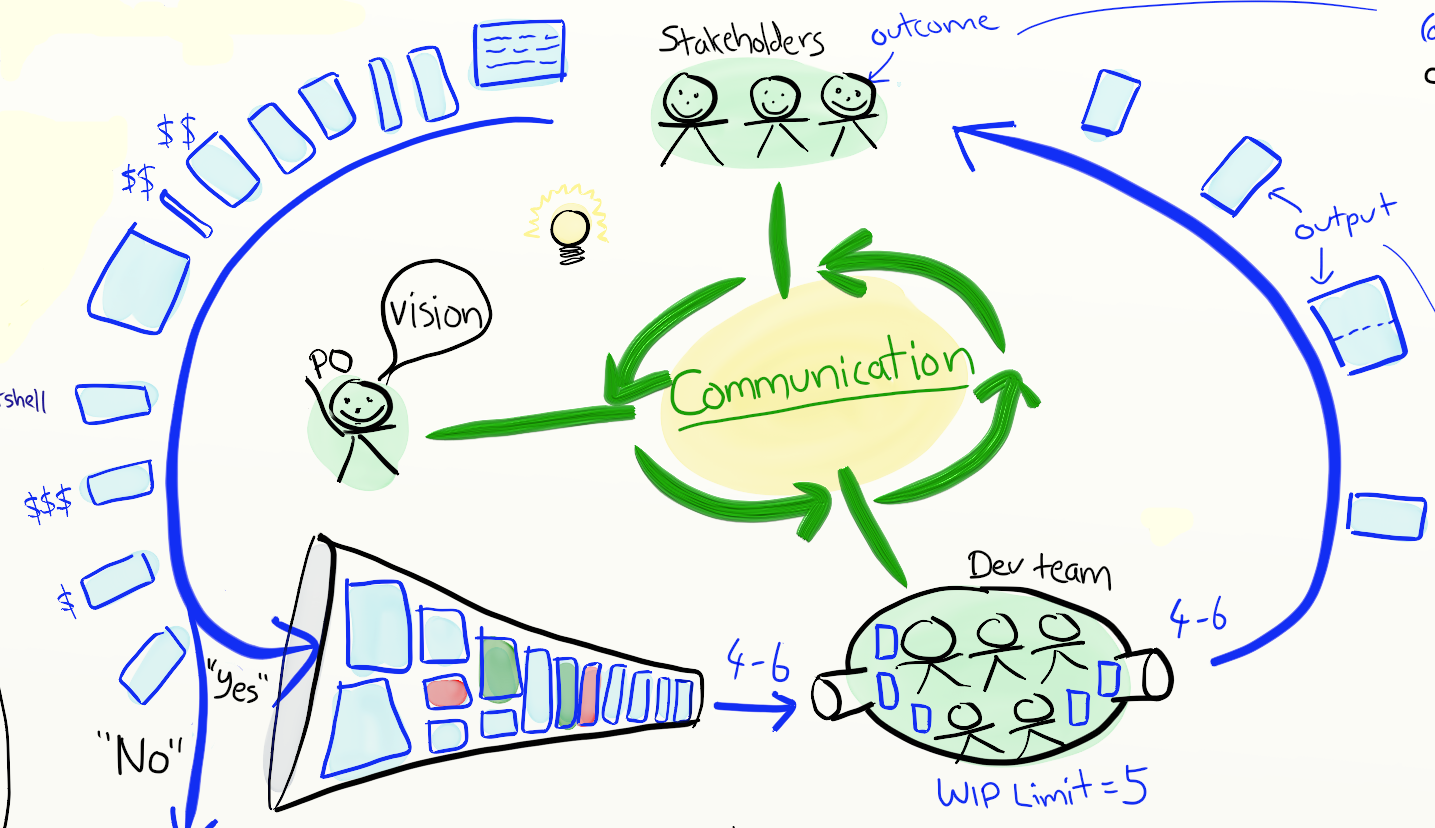 Stakeholders
outcome
$$
$$
output
vision
PO
Communication
$$$
$
Dev team
4-6
4-6
"Yes"
"No"
WIP Limit = 5